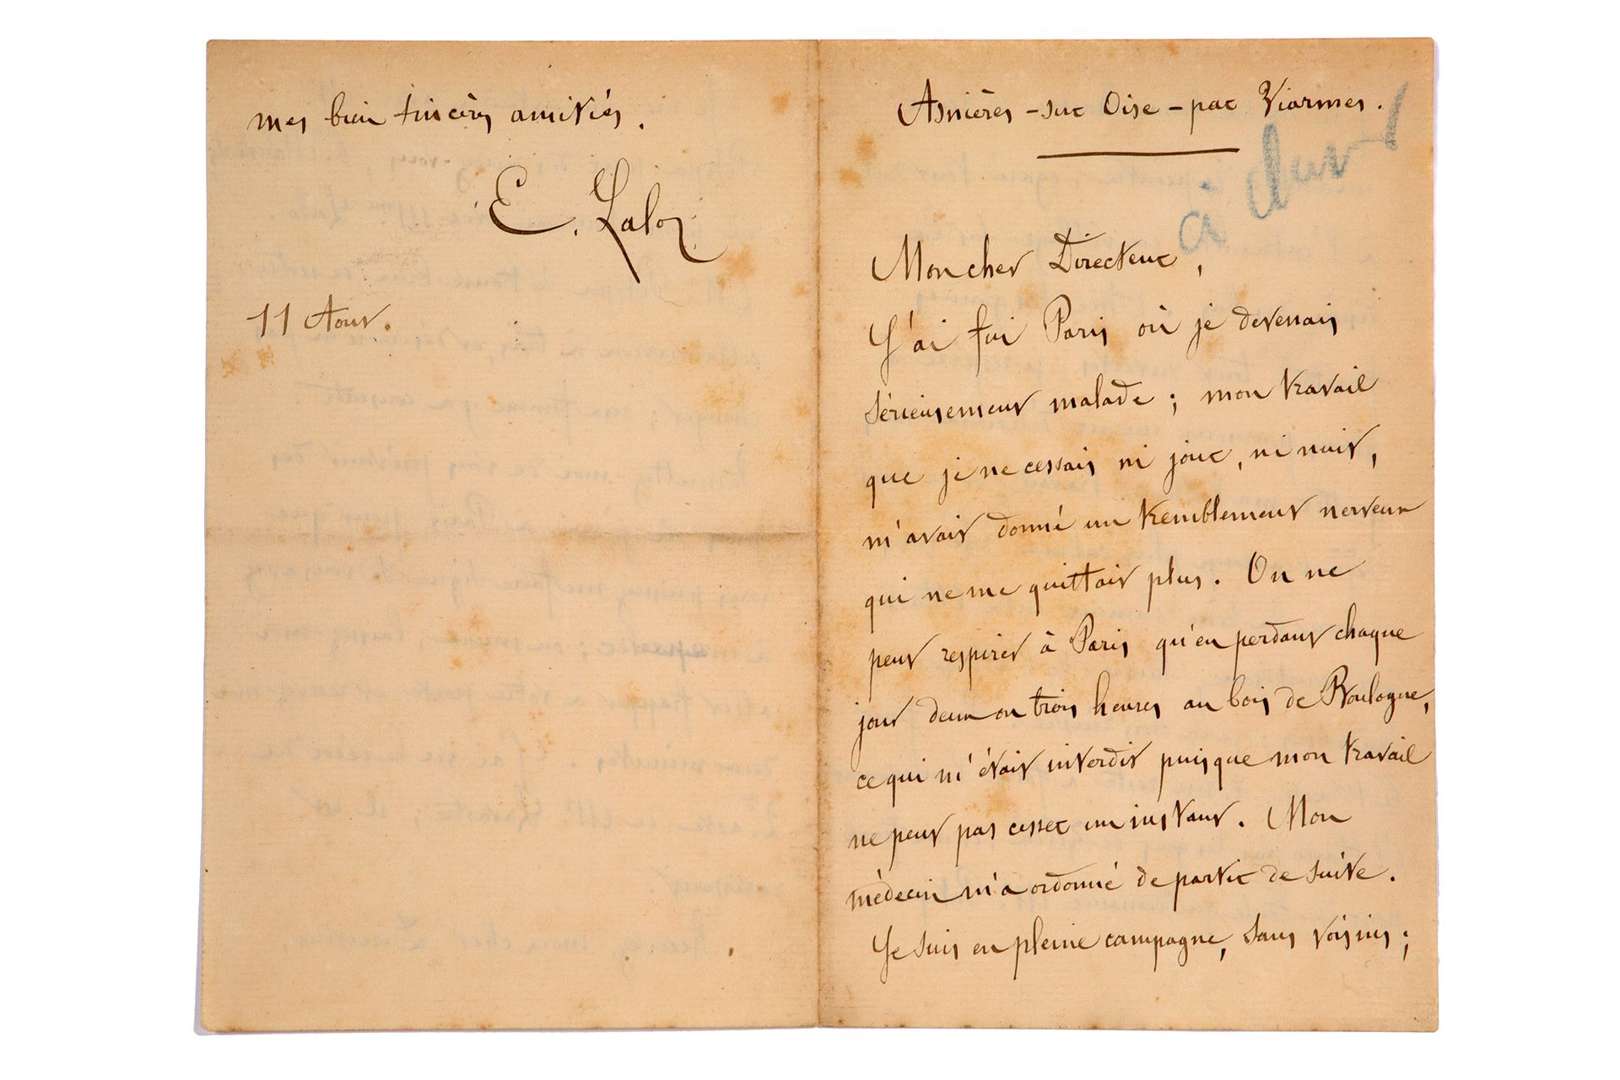 mes bien sincères amitiés.
E. Lalo
11 Aout.
Asnières-sur Oise - par Viarmes.
Mon cher Directeur,
J'ai fui Paris où je devenais
sérieusement malade; mon travail
que je ne cessais ni jour, ni nuit,
m'avait donné un tremblement nerveux
qui ne me quittait plus. On ne
peut respirer à Paris qu'en perdant chaque
jour deux ou trois heures au bois de Boulogne,
ce qui m'était interdit puisque mon travail
ne peut pas cesser un instant. Mon
médecin m'a ordonné de partir de suite.
Je suis en pleine campagne, sans voisins;